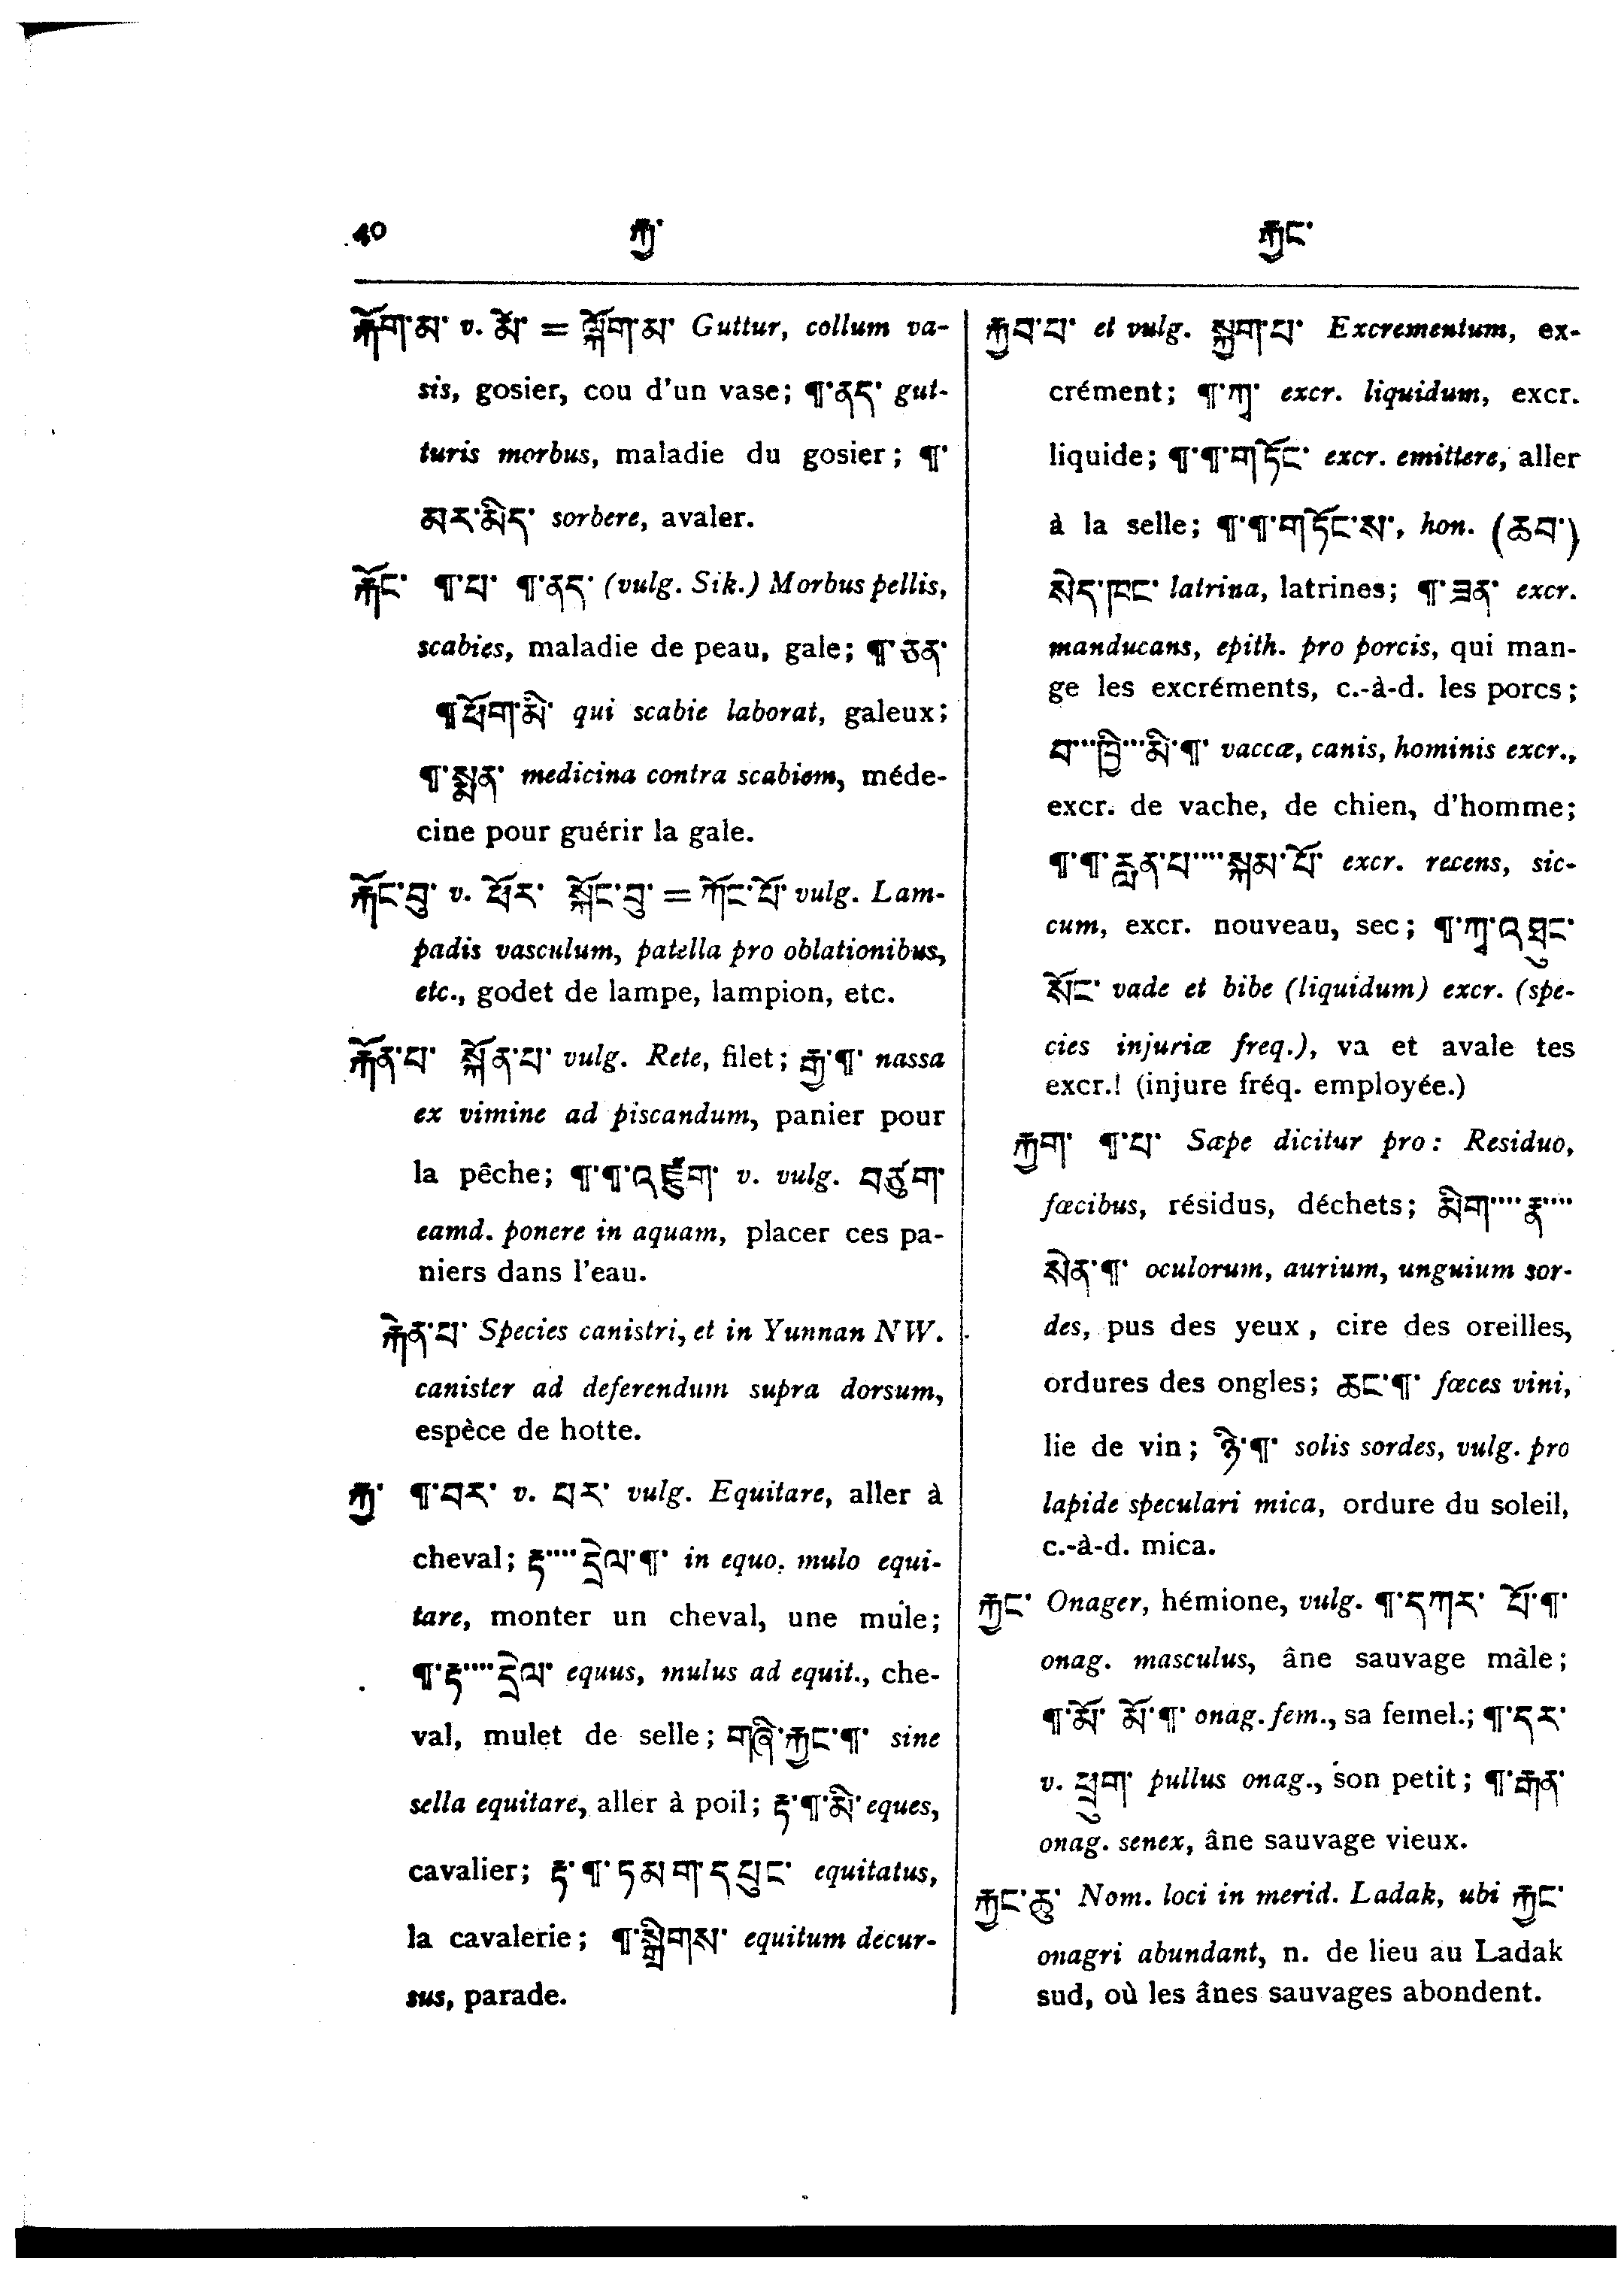 40 རྐྱ་ རྐྱང་
རྐོག་མ་ v. མོ་ = ལྐོག་མ་ Guttur, collum va-
sis, gosier, cou d'un vase; ¶་ནད་ gut-
turis morbus, maladie du gosier; ¶་
མར་མིད་ sorbere, avaler.
རྐོང་ ¶་པ་ ¶་ནད་ (vulg. Sik.) Morbus pellis,
scabies, maladie de peau, gale; ¶་ཅན་
¶་ཕོག་མི་ qui scabie laborat, galeux;
¶་སྨན་ medicina contra scabiem, méde-
cine pour guérir la gale.
རྐོང་བུ་ v. པོར་ སྐོང་བུ་ = ཀོང་པོ་ vulg. Lam-
padis vasculum, patella pro oblationibus,
etc., godet de lampe, lampion, etc.
རྐོན་པ་ སྐོན་པ་ vulg. Rete, filet; རྒྱ་¶་ nassa
ex vimine ad piscandum, panier pour
la pêche; ¶་¶་འཛུག་ v. vulg. བཙུག་
eamd. ponere in aquam, placer ces pa-
niers dans l'eau.
རྐེན་པ་ Species canistri, et in Yunnan NW.
canister ad deferendum supra dorsum,
espèce de hotte.
རྐྱ་ ¶་བར་ v. པར་ vulg. Equitare, aller à
cheval; རྟ་་་་དྲེལ་¶་ in equo, mulo equi-
tare, monter un cheval, une mule;
¶་རྟ་་་་དྲེལ་ equus, mulus ad equit., che-
val, mulet de selle; གཞི་རྐྱང་¶་ sine
sella equitare, aller à poil; རྟ་¶་མི་ eques,
cavalier; རྟ་¶་དམག་དཔུང་ equitatus,
la cavalerie; ¶་སྒྲིགས་ equitum decur-
sus, parade.
རྐྱབ་པ་ et vulg. སྐྱག་པ་ Excrementum, ex-
crément; ¶་ཀཱ་ excr. liquidum, excr.
liquide; ¶་¶་གཏོང་ excr. emittere, aller
à la selle; ¶་¶་གཏོང་ས་, hon. (ཆབ་)
སེད་ཁང་ latrina, latrines; ¶་ཟན་ excr.
manducans, epith. pro porcis, qui man-
ge les excréments, c.-à-d. les porcs;
བ་་་ཁྱི་་་མི་¶་ vaccæ, canis, hominis excr.,
excr. de vache, de chien, d'homme;
¶་¶་རླན་པ་་་་སྐམ་པོ་ excr. recens, sic-
cum, excr. nouveau, sec; ¶་ཀཱ་འཐུང་
སོང་ vade et bibe (liquidum) excr. (spe-
cies injuriæ freq.), va et avale tes
excr.! (injure fréq. employée.)
རྐྱག་ ¶་པ་ Sæpe dicitur pro: Residuo,
fæcibus, résidus, déchets; མིག་་་་རྣ་་་་
སེན་¶་ oculorum, aurium, unguium sor-
des, pus des yeux, cire des oreilles,
ordures des ongles; ཆང་¶་ fæces vini,
lie de vin; ཉི་¶་ solis sordes, vulg. pro
lapide speculari mica, ordure du soleil,
c.-à-d. mica.
རྐྱང་ Onager, hémione, vulg. ¶་དཀར་ པོ་¶་
onag. masculus, âne sauvage mâle;
¶་མོ་ མོ་¶་ onag. fem., sa femel.; ¶་དར་
v. ཕྲུག་ pullus onag., son petit; ¶་རྒན་
onag. senex, âne sauvage vieux.
རྐྱང་ཆུ་ Nom. loci in merid. Ladak, ubi རྐྱང་
onagri abundant, n. de lieu au Ladak
sud, où les ânes sauvages abondent.